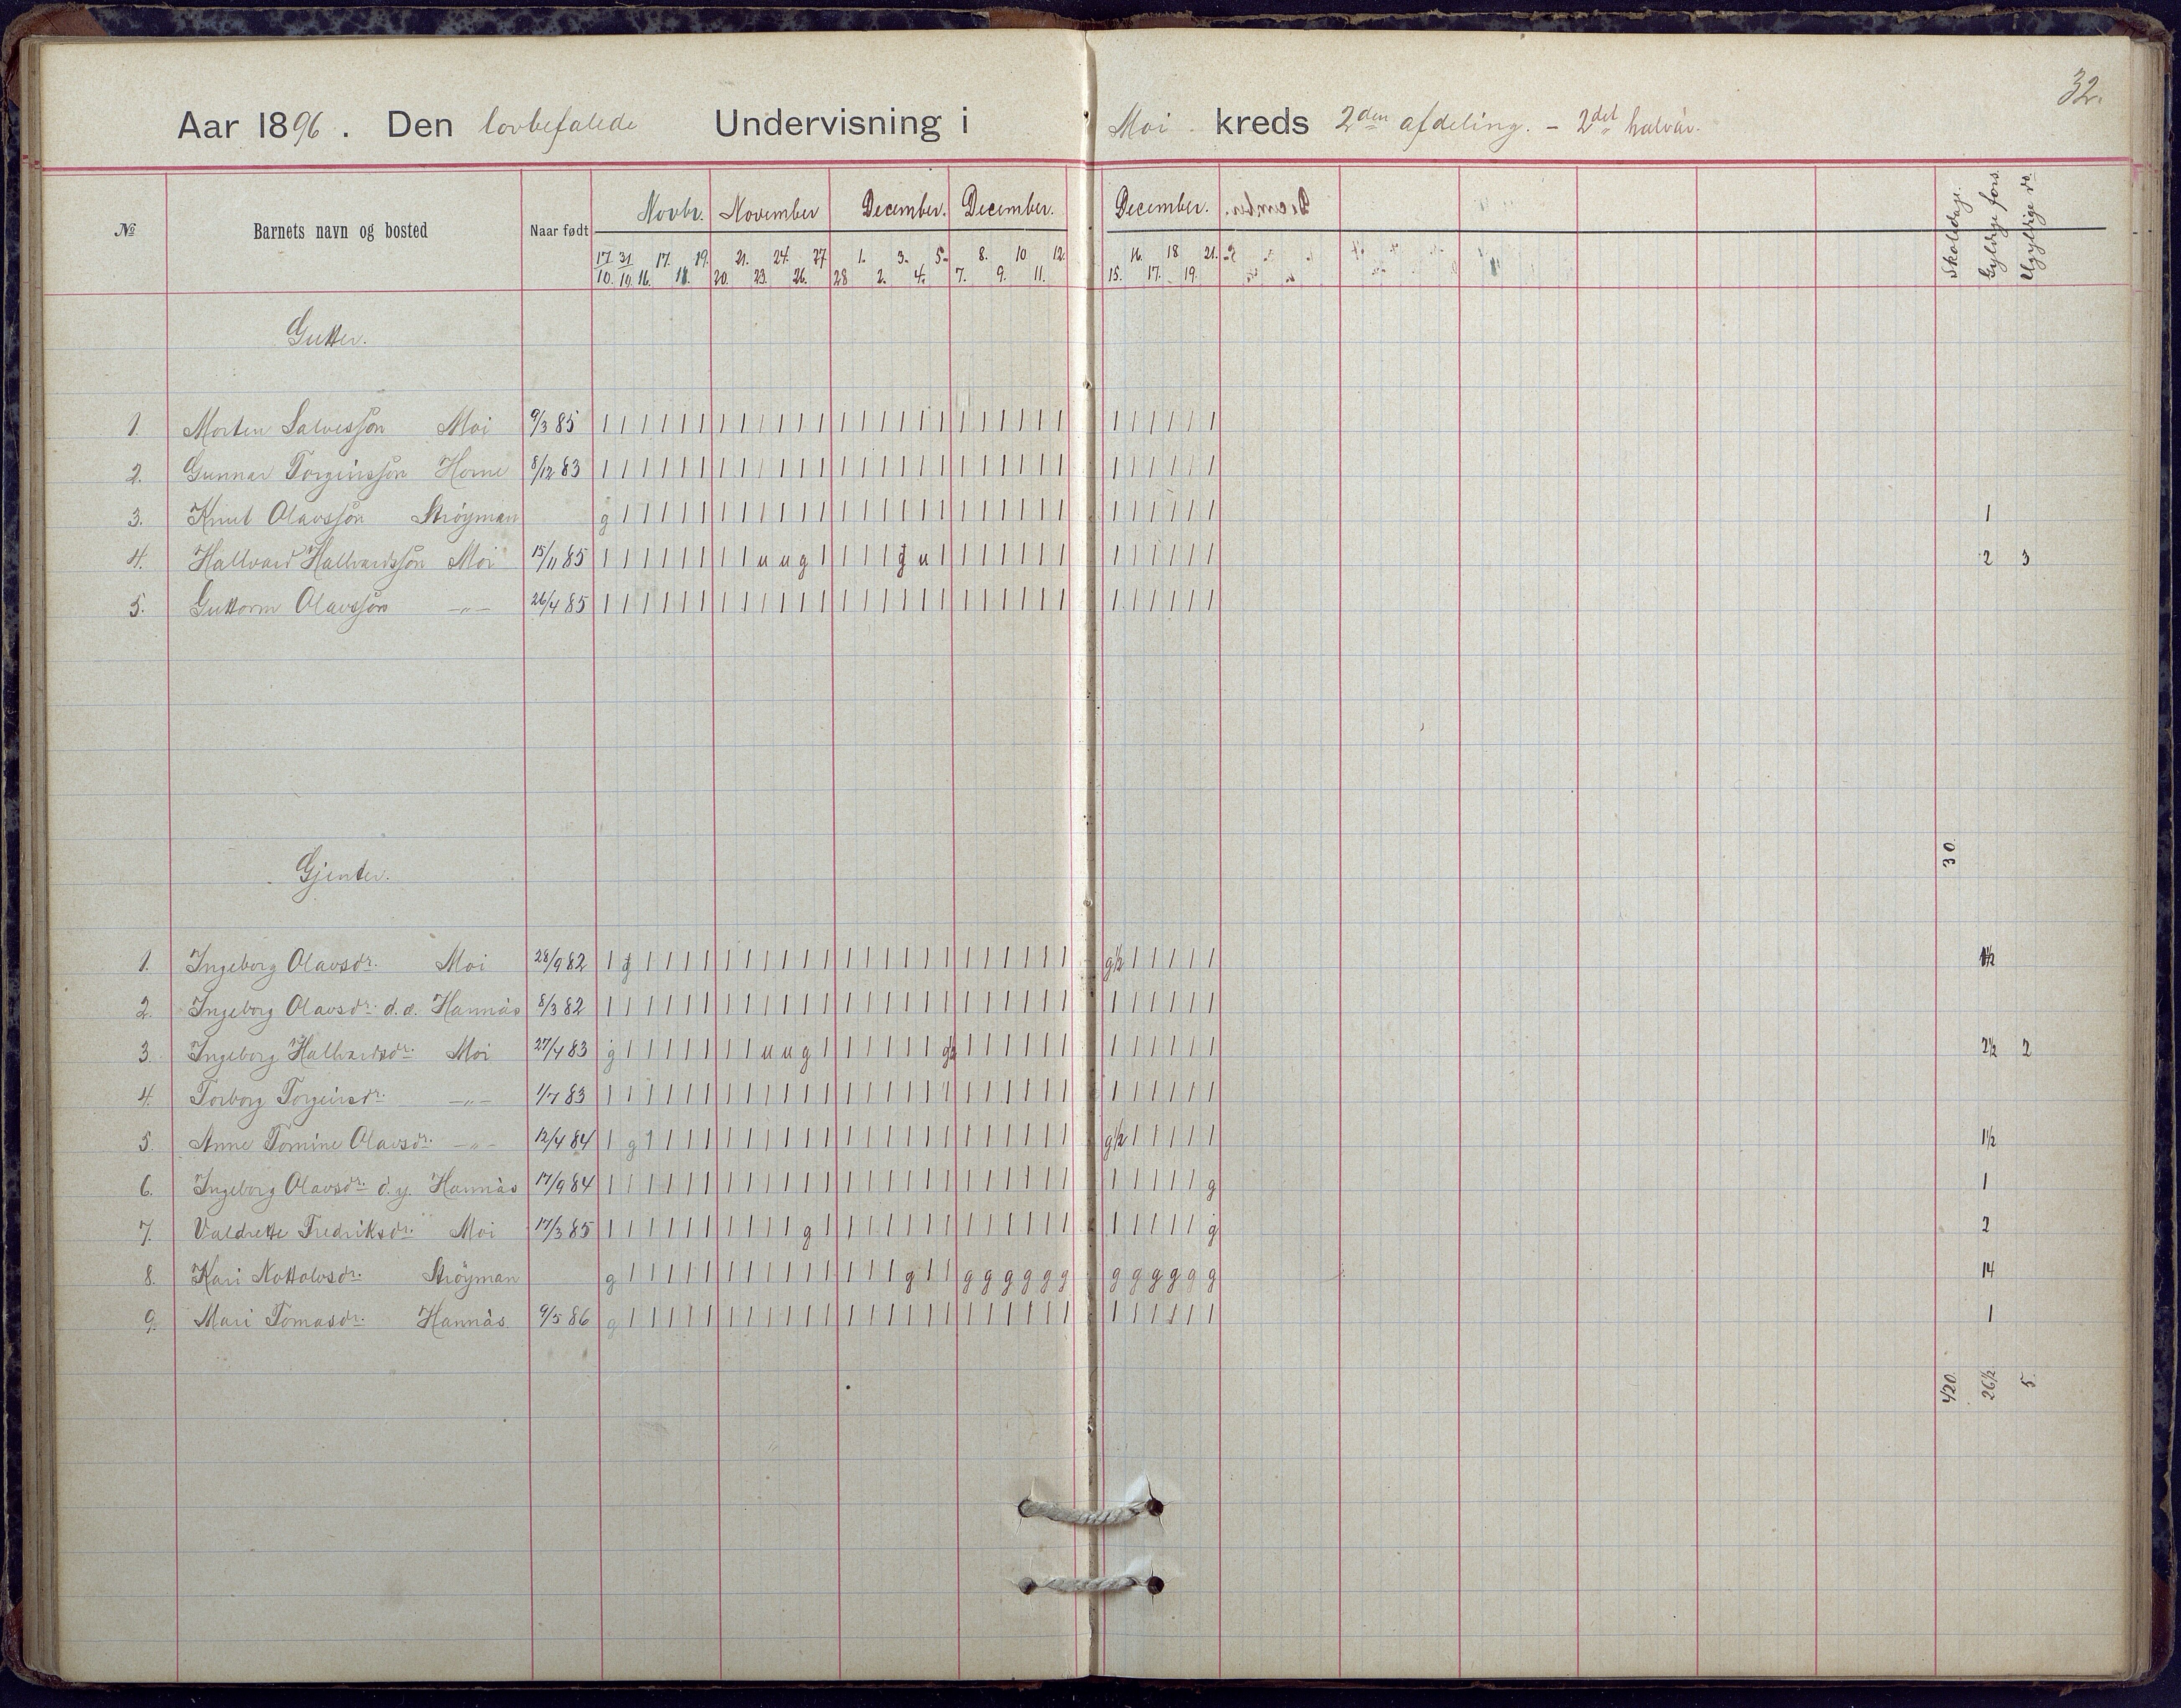 32.
Aar 1896. Den lovbefalede Undervisning i Moi kreds 2den afdeling. – 2det halvår.
№ Barnets navn og bosted Naar født Novbr. November December. December. December. Skoledage. Gyldige fors. Ugyldige do.
17. 31. 17. 19. 21. 24. 27 1. 3. 5. 8. 10 12. 16. 18 21.
10. 19. 16. 18. 20. 23. 26. 28 2. 4. 7. 9. 11. 15. 17. 19.
Gutter.
1. Morten Salvesson Moi 9/3 85 | | | | | | | | | | | | | | | | | | | | | | | | | | | | | |
2. Gunnar Torgeirsson Horne 8/12 83 | | | | | | | | | | | | | | | | | | | | | | | | | | | | | |
3. Knut Olavsson Strøyman g | | | | | | | | | | | | | | | | | | | | | | | | | | | | | 1
4. Hallvard Hallvardsson Moi 15/11 85 | | | | | | | | u u g | | | | g u | | | | | | | | | | | | | 2 3
5. Guttorm Olavsson –„– 26/4 85 | | | | | | | | | | | | | | | | | | | | | | | | | | | | | |
30.
Gjenter.
1. Ingeborg Olavsdr. Moi 28/9 82 | g | | | | | | | | | | | | | | | | | | | | | | g½ | | | | | 1½
2. Ingeborg Olavsdr. d.æ. Hannås 8/3 82 | | | | | | | | | | | | | | | | | | | | | | | | | | | | | |
3. Ingeborg Hallvardsdr. Moi 27/4 83 g | | | | | | | u u g | | | | | | g½ | | | | | | | | | | | | 2½ 2
4. Torborg Torgeirsdr. –„– 1/7 83 | | | | | | | | | | | | | | | | | | | | | | | | | | | | | |
5. Anne Tomine Olavsdr. –„– 12/4 84 | g | | | | | | | | | | | | | | | | | | | | | | g½ | | | | | 1½
6. Ingeborg Olavsdr. d.y. Hannås 17/9 84 | | | | | | | | | | | | | | | | | | | | | | | | | | | | | g 1
7. Valdrette Fredriksdr. Moi 17/3 85 | | | | | | | | | | g | | | | | | | | | | | | | | | | | | g 2
8. Kari Nottolvsdr. Strøyman g | | | | | | | | | | | | | | g | | g g g g g g g g g g g g 14
9. Mari Tomasdr. Hannås 9/5 86 g | | | | | | | | | | | | | | | | | | | | | | | | | | | | | 1
420 26½ 5.